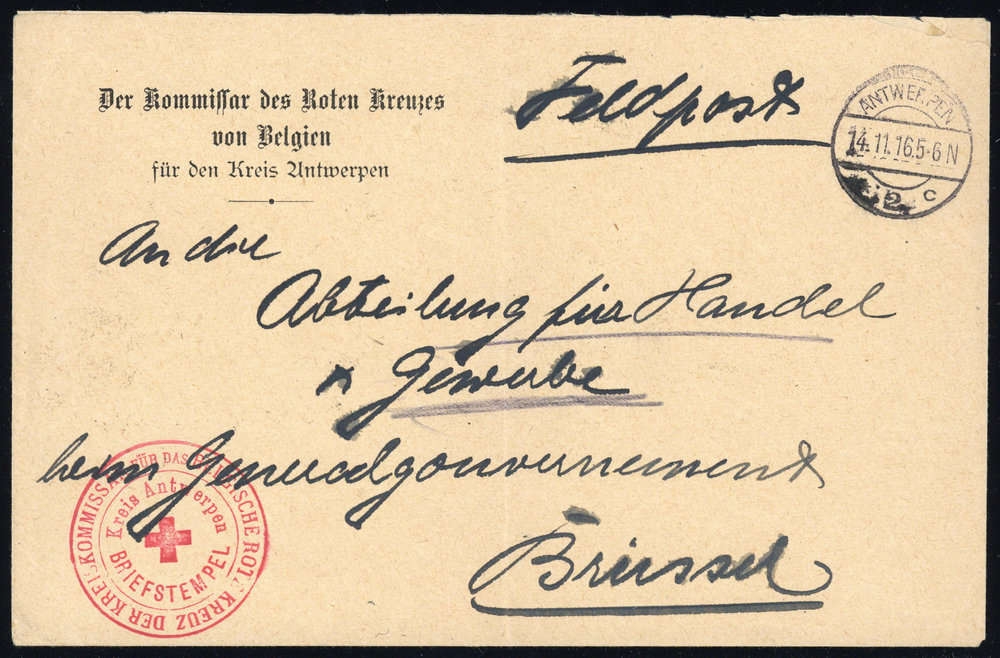 Der Kommissar des Roten Kreuzes
von Belgien
für den Kreis Antwerpen
Feldpost
ANTWERPEN
14.11.16.5-6 N
2 c
An die
Abteilung für Handel
Gewerbe
beim Generalgouvernement
Brüssel
DER KREISKOMMISSAR FÜR DAS BELGISCHE ROTE KREUZ
Kreis Antwerpen
BRIEFSTEMPEL